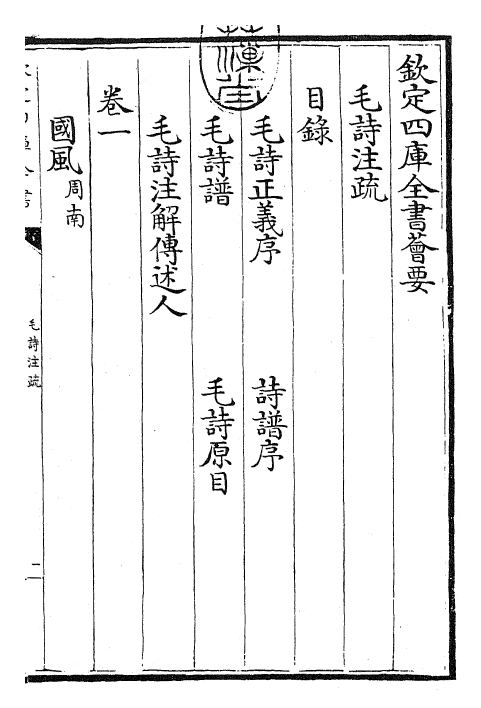 欽定四庫全書薈要
毛詩注疏
目錄
毛詩正義序 詩譜序
毛詩譜 毛詩原目
毛詩注解傳述人
卷一
國風周南
毛詩注疏
二